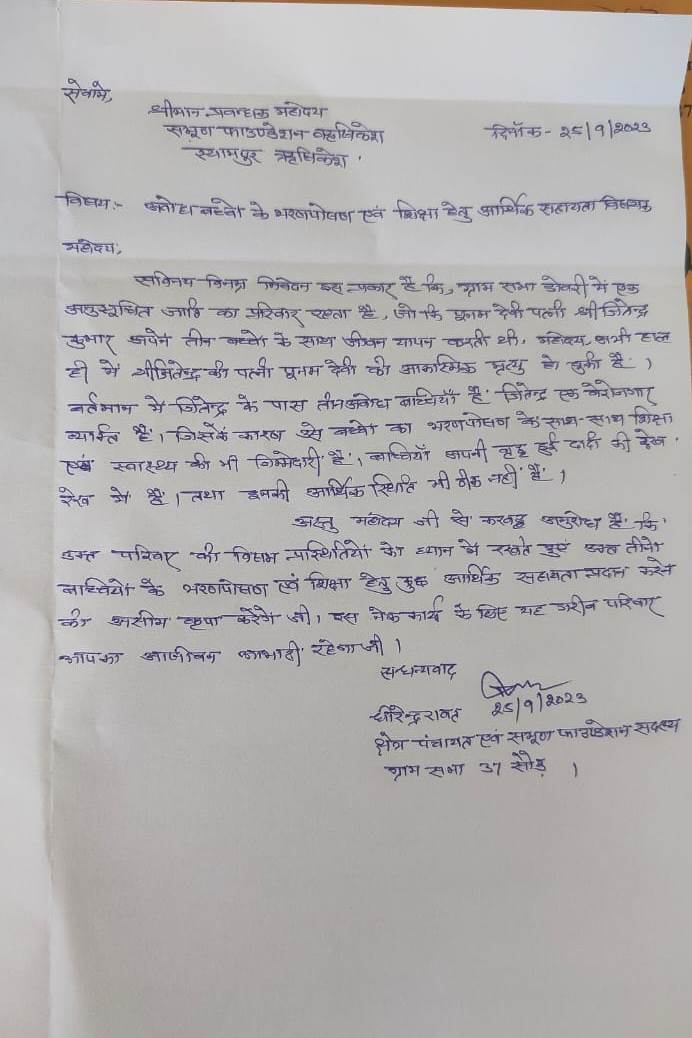 सेवामे,
श्रीमान प्रबन्धक महोदय
सम्पूण फाउण्डेशन ऋषिकेश
दिनाँक - 25/9/2023
श्यामपुर ऋषिकेश .
विषय:- अबोध बच्चो के भरणपोषण एवं शिक्षा हेतु आर्थिक सहायता विषयक
महोदय,
सविनय विनम्र निवेदन इस प्रकार है कि, ग्राम सभा डोबरी में एक
अनुसूचित जाति का परिवार रहता है, जो कि पूनम देवी पत्नी श्री जितेन्द्र
कुमार अपने तीन बच्चो के साथ जीवन यापन करती थी, महोदय, अभी हाल
ही में श्री जितेन्द्र की पत्नी पूनम देवी की आकास्मिक मृत्यु हो चुकी है ।
वर्तमान मे जितेन्द्र के पास तीन अबोध बाच्चियाँ है जितेन्द्र एक बेरोजगार
व्याक्ति है, जिसके कारण उसे बच्चो का भरणपोषण के साथ-साथ शिक्षा
एवं स्वास्थ्य की भी जिम्मेदारी है, बाच्चियाँ अपनी वृद्ध हुई दादी की देख
रेख मे है । तथा इनकी आर्थिक स्थिति भी ठीक नही है ।
अस्तु महोदय जी से करबद्ध अनुरोध है कि
उक्त परिवार की विषम परिस्थितियो को ध्यान मे रखते हुए उक्त तीनो
बाच्चियो के भरणपोषण एवं शिक्षा हेतु कुछ आर्थिक सहायता प्रदान करने
की असीम कृपा करेंगे जी, इस नेक कार्य के लिए यह गरीब परिवार
आपका आजीवन आभारी रहेगा जी ।
सधन्यवाद
25/9/2023
धीरेन्द्र रावत
क्षेत्र पंचायत एवं सम्पूण फाउण्डेशन सदस्य
ग्राम सभा 37 सौड़ ।